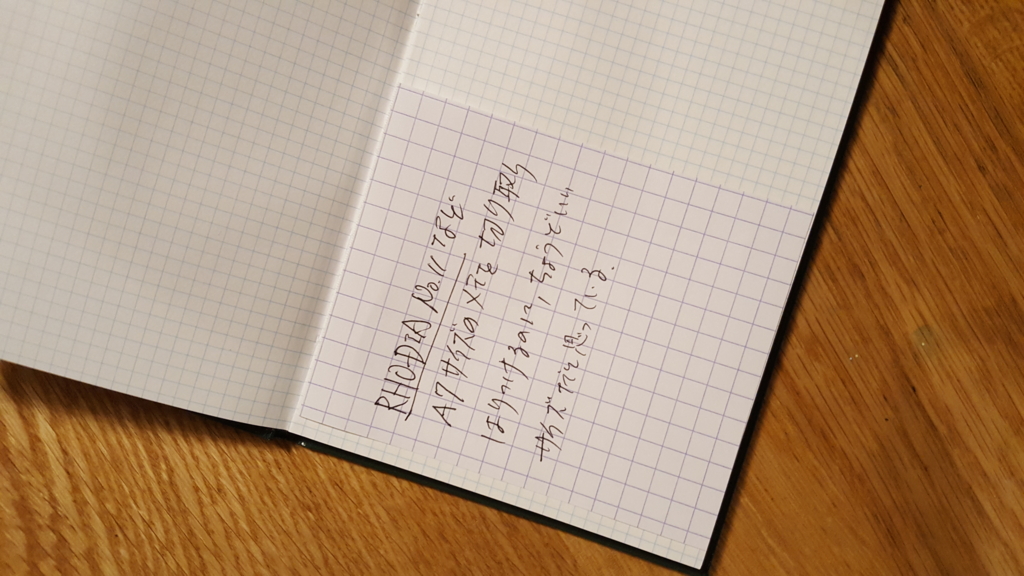 RHODIA No.11 など
A7サイズのメモを切り取り
はりつけするのに、ちょうどいい
サイズだと思っている.